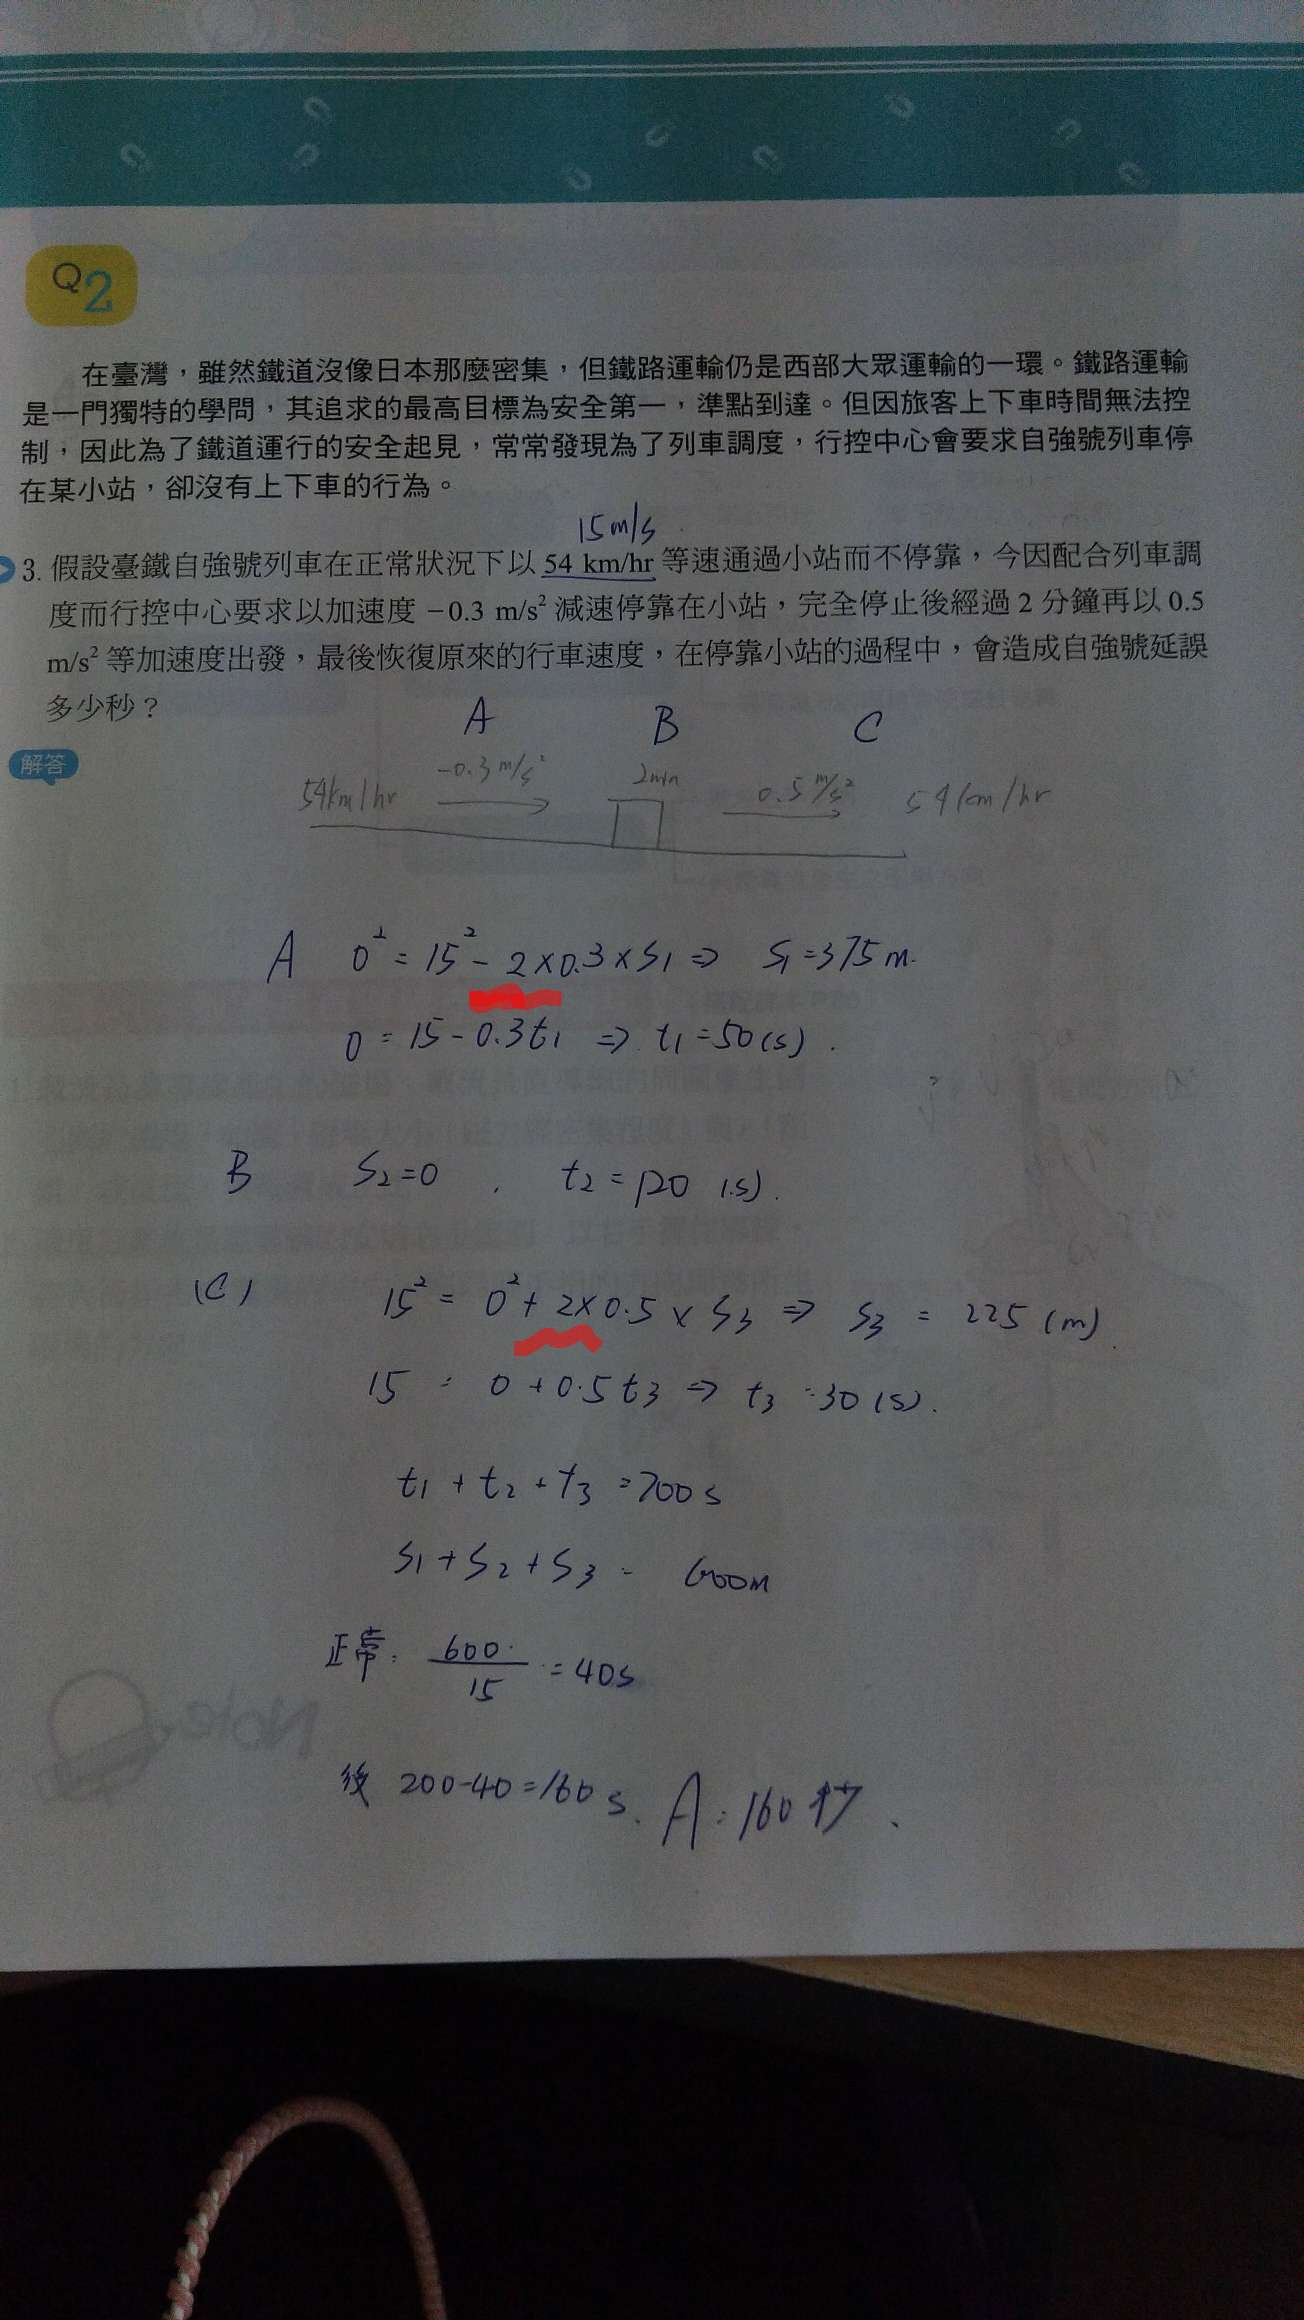 Q2
在臺灣，雖然鐵道沒像日本那麼密集，但鐵路運輸仍是西部大眾運輸的一環。鐵路運輸
是一門獨特的學問，其追求的最高目標為安全第一，準點到達。但因旅客上下車時間無法控
制，因此為了鐵道運行的安全起見，常常發現為了列車調度，行控中心會要求自強號列車停
在某小站，卻沒有上下車的行為。
15 m/s
3. 假設臺鐵自強號列車在正常狀況下以 54 km/hr 等速通過小站而不停靠，今因配合列車調
度而行控中心要求以加速度 −0.3 m/s² 減速停靠在小站，完全停止後經過 2 分鐘再以 0.5
m/s² 等加速度出發，最後恢復原來的行車速度，在停靠小站的過程中，會造成自強號延誤
多少秒？
A B C
解答
54km/hr -0.3 m/s² 2min 0.5 m/s² 54km/hr
A 0² = 15² - 2×0.3×S1 ⇒ S1=375m.
0 = 15-0.3t1 ⇒ t1=50(s).
B S2=0 , t2=120 (s).
(C) 15² = 0² + 2×0.5 × S3 ⇒ S3 = 225 (m).
15 = 0+0.5t3 ⇒ t3=30(s).
t1 + t2 + t3 = 200s
S1+S2+S3 = 600m
正常: 600/15 = 40s
後 200-40=160s. A:160秒.